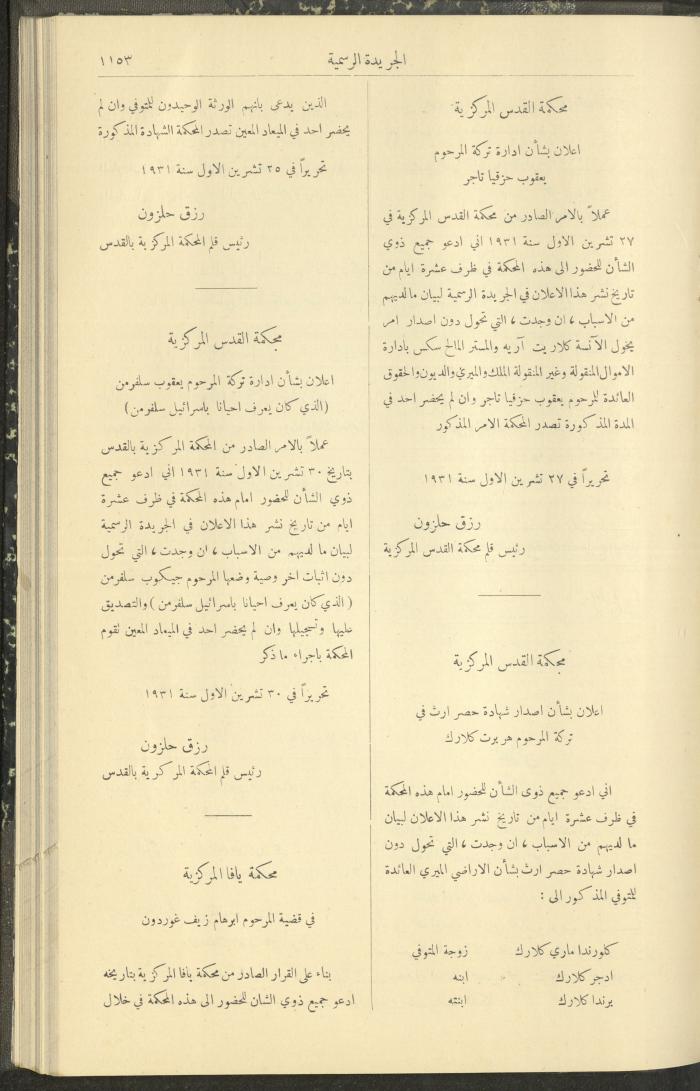 الجريدة الرسمية
١١٥٣
محكمة القدس المركزية
اعلان بشأن ادارة تركة المرحوم
يعقوب حزقيا تاجر
عملاً بالامر الصادر من محكمة القدس المركزية في
٢٧ تشرين الاول سنة ١٩٣١ اني ادعو جميع ذوي
الشأن للحضور الى هذه المحكمة في ظرف عشرة ايام من
تاريخ نشر هذا الاعلان في الجريدة الرسمية لبيان ما لديهم
من الاسباب ، ان وجدت ، التي تحول دون اصدار امر
يخول الآنسة كلاريت آريه والمستر المالح سكس بادارة
الاموال المنقولة وغير المنقولة الملك والميري والديون والحقوق
العائدة للمرحوم يعقوب حزقيا تاجر وان لم يحضر احد في
المدة المذكورة تصدر المحكمة الامر المذكور
تحريراً في ٢٧ تشرين الاول سنة ١٩٣١
رزق حلزون
رئيس قلم محكمة القدس المركزية
محكمة القدس المركزية
اعلان بشأن اصدار شهادة حصر ارث في
تركة المرحوم هربرت كلارك
اني ادعو جميع ذوى الشأن للحضور امام هذه المحكمة
في ظرف عشرة ايام من تاريخ نشر هذا الاعلان لبيان
ما لديهم من الاسباب ، ان وجدت ، التي تحول دون
اصدار شهادة حصر ارث بشأن الاراضي الميري العائدة
للمتوفي المذكور الى :
كلورندا ماري كلارك زوجة المتوفي
ادجر كلارك ابنه
برندا كلارك ابنته
الذين يدعى بانهم الورثة الوحيدون للمتوفي وان لم
يحضر احد في الميعاد المعين تصدر المحكمة الشهادة المذكورة
تحريراً في ٢٥ تشرين الاول سنة ١٩٣١
رزق حلزون
رئيس قلم المحكمة المركزية بالقدس
محكمة القدس المركزية
اعلان بشأن ادارة تركة المرحوم يعقوب سلفرمن
(الذي كان يعرف احيانا باسرائيل سلفرمن)
عملاً بالامر الصادر من المحكمة المركزية بالقدس
بتاريخ ٣٠ تشرين الاول سنة ١٩٣١ اني ادعو جميع
ذوي الشأن للحضور امام هذه المحكمة في ظرف عشرة
ايام من تاريخ نشر هذا الاعلان في الجريدة الرسمية
لبيان ما لديهم من الاسباب ، ان وجدت ، التي تحول
دون اثبات اخر وصية وضعها المرحوم جيكوب سلفرمن
( الذي كان يعرف احيانا باسرائيل سلفرمن ) والتصديق
عليها وتسجيلها وان لم يحضر احد في الميعاد المعين تقوم
المحكمة باجراء ما ذكر
تحريراً في ٣٠ تشرين الاول سنة ١٩٣١
رزق حلزون
رئيس قلم المحكمة المركزية بالقدس
محكمة يافا المركزية
في قضية المرحوم ابرهام زيف غوردون
بناء على القرار الصادر من محكمة يافا المركزية بتاريخه
ادعو جميع ذوي الشان للحضور الى هذه المحكمة في خلال